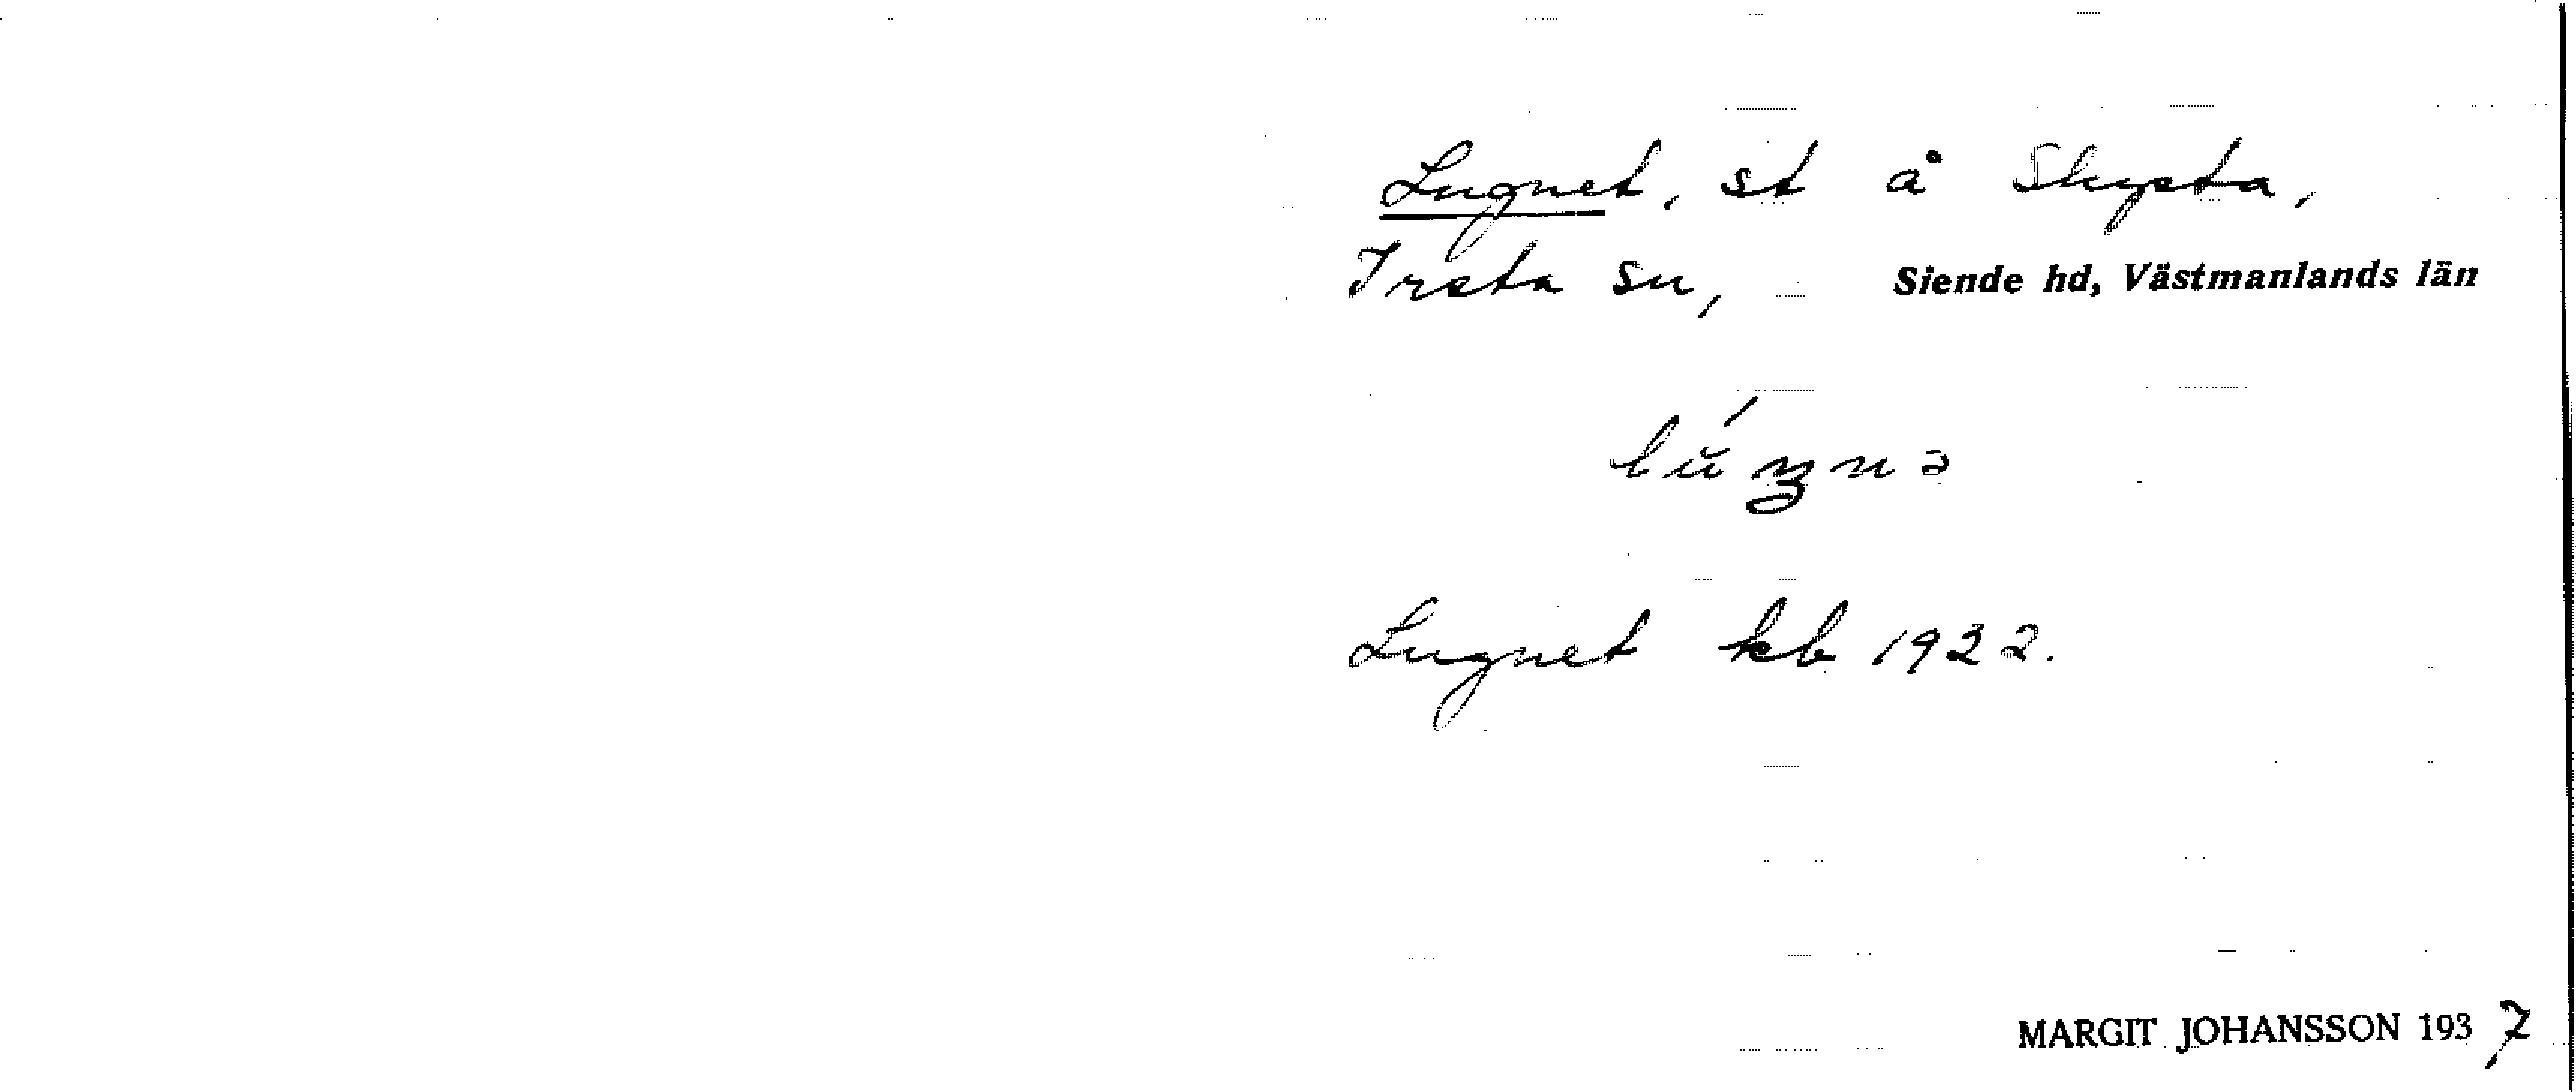 Lugnet, st å Skysta,
Irsta sn, Siende hd, Västmanlands län
Lugnet kb 1922.
MARGIT JOHANSSON 1937